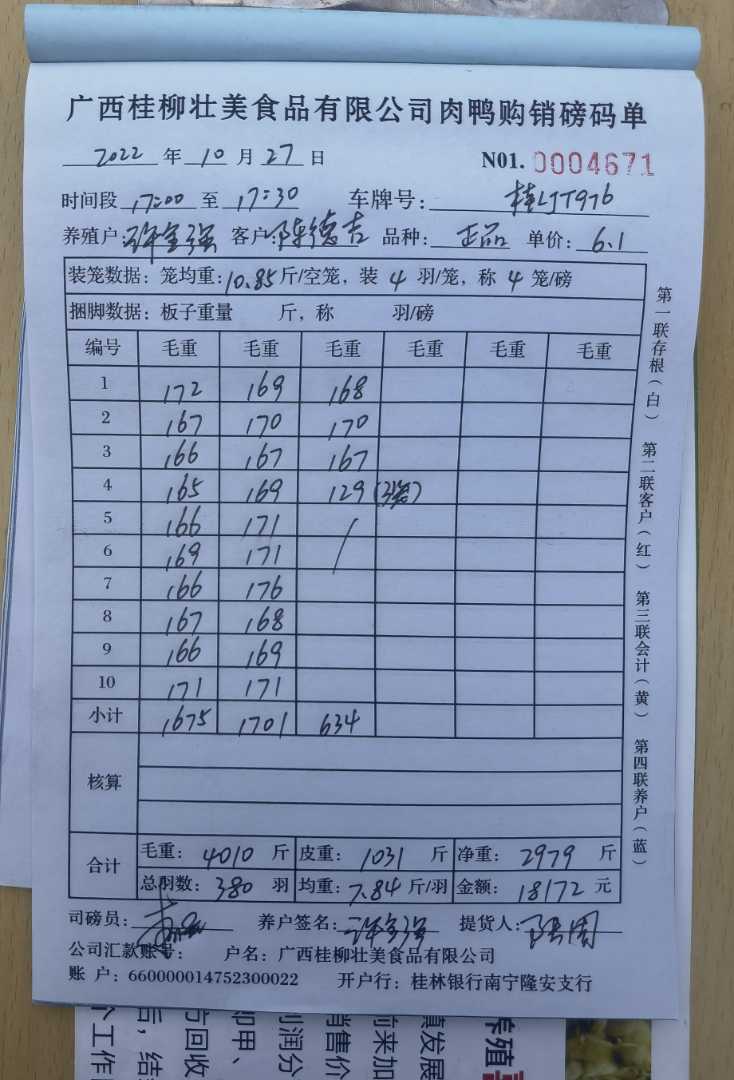 广西桂柳壮美食品有限公司肉鸭购销磅码单
2022 年 10 月 27 日 N01. 0004671
时间段 17:00 至 17:30 车牌号: 桂LJT976
养殖户: 许全强 客户: 陈德吉 品种: 正品 单价: 6.1
装笼数据: 笼均重: 10.85 斤/空笼, 装 4 羽/笼, 称 4 笼/磅
捆脚数据: 板子重量 斤, 称 羽/磅
编号 毛重 毛重 毛重 毛重 毛重 毛重
1 172 169 168
2 167 170 170
3 166 167 167
4 165 169 129 (3笼)
5 166 171 /
6 169 171
7 166 176
8 167 168
9 166 169
10 171 171
小计 1675 1701 634
核算
合计
毛重: 4010 斤 皮重: 1031 斤 净重: 2979 斤
总羽数: 380 羽 均重: 7.84 斤/羽 金额: 18172 元
司磅员: 养户签名: 许全强 提货人:
公司汇款账号: 户名: 广西桂柳壮美食品有限公司
账 户: 660000014752300022 开户行: 桂林银行南宁隆安支行
第一联存根(白) 第二联客户(红) 第三联会计(黄) 第四联养户(蓝)
养殖
真发展
前来加
销售价
利润分
即甲、
方回收
后,结
个工作